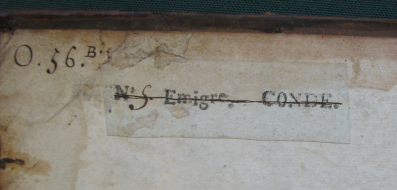 O. 56. B.
N.º 5. Emigré, CONDE.